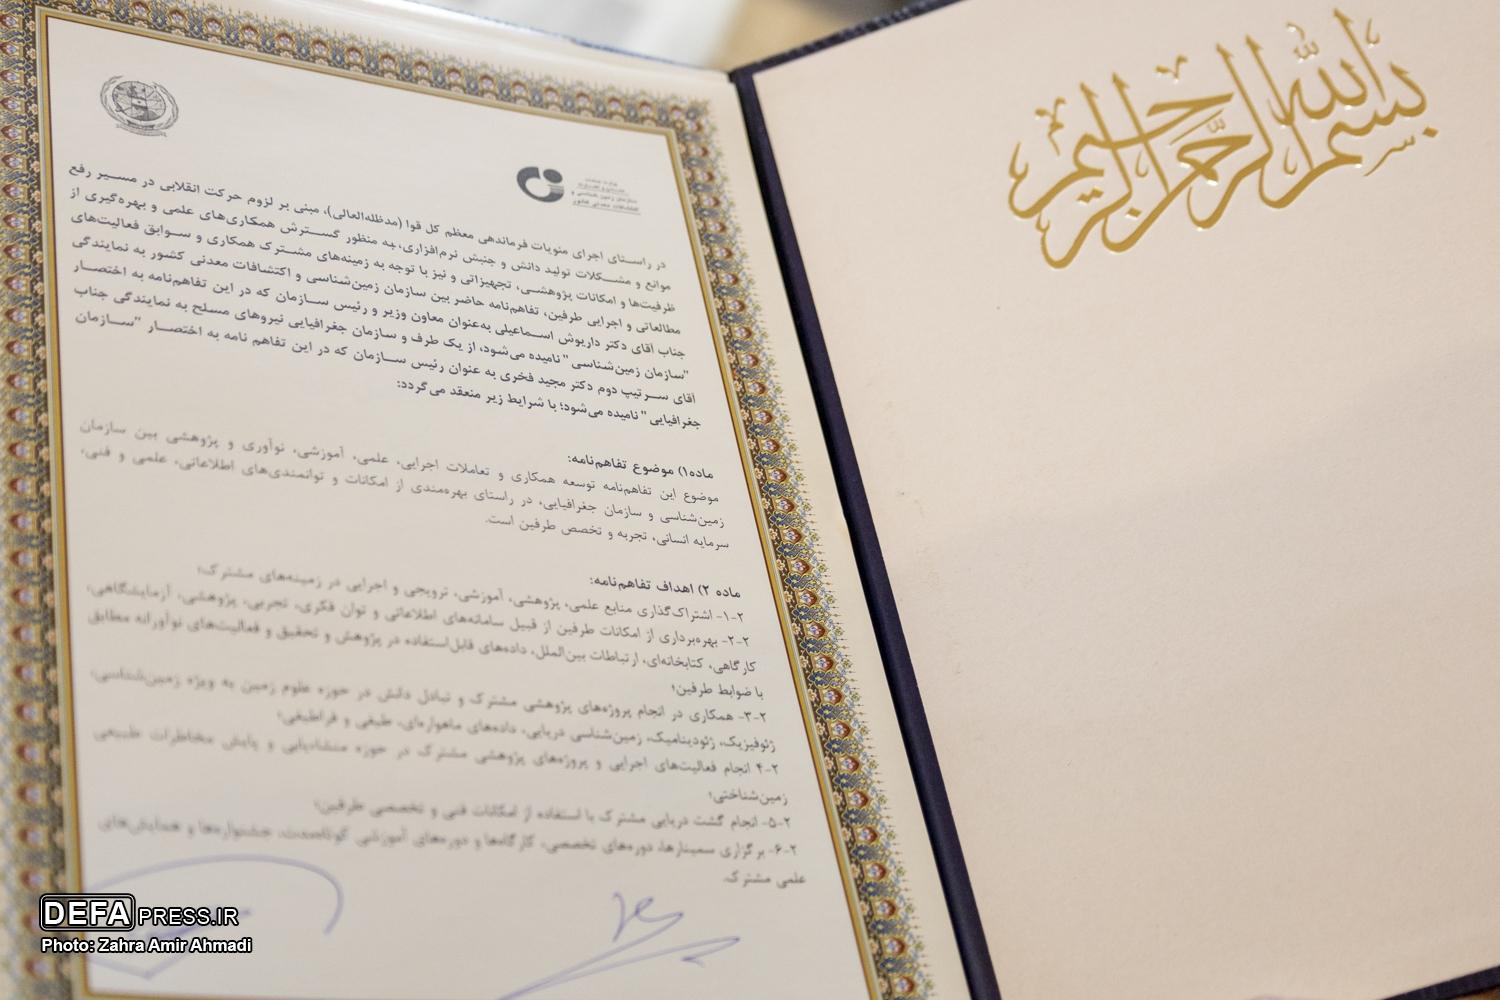 بسم الله الرحمن الرحیم
سازمان زمین‌شناسی و
اکتشافات معدنی کشور
در راستای اجرای منویات فرماندهی معظم کل قوا (مدظله‌العالی)، مبنی بر لزوم حرکت انقلابی در مسیر رفع
موانع و مشکلات تولید دانش و جنبش نرم‌افزاری، به منظور گسترش همکاری‌های علمی و بهره‌گیری از
ظرفیت‌ها و امکانات پژوهشی، تجهیزاتی و نیز با توجه به زمینه‌های مشترک همکاری و سوابق فعالیت‌های
مطالعاتی و اجرایی طرفین، تفاهم‌نامه حاضر بین سازمان زمین‌شناسی و اکتشافات معدنی کشور به نمایندگی
جناب آقای دکتر داریوش اسماعیلی به‌عنوان معاون وزیر و رئیس سازمان که در این تفاهم‌نامه به اختصار
"سازمان زمین‌شناسی" نامیده می‌شود، از یک طرف و سازمان جغرافیایی نیروهای مسلح به نمایندگی جناب
آقای سرتیپ دوم دکتر مجید فخری به عنوان رئیس سازمان که در این تفاهم نامه به اختصار "سازمان
جغرافیایی" نامیده می‌شود؛ با شرایط زیر منعقد می‌گردد:
ماده۱) موضوع تفاهم‌نامه:
موضوع این تفاهم‌نامه توسعه همکاری و تعاملات اجرایی، علمی، آموزشی، نوآوری و پژوهشی بین سازمان
زمین‌شناسی و سازمان جغرافیایی، در راستای بهره‌مندی از امکانات و توانمندی‌های اطلاعاتی، علمی و فنی،
سرمایه انسانی، تجربه و تخصص طرفین است.
ماده ۲) اهداف تفاهم‌نامه:
۲-۱- اشتراک‌گذاری منابع علمی، پژوهشی، آموزشی، ترویجی و اجرایی در زمینه‌های مشترک؛
۲-۲- بهره‌برداری از امکانات طرفین از قبیل سامانه‌های اطلاعاتی و توان فکری، تجربی، پژوهشی، آزمایشگاهی،
کارگاهی، کتابخانه‌ای، ارتباطات بین‌الملل، داده‌های قابل‌استفاده در پژوهش و تحقیق و فعالیت‌های نوآورانه مطابق
با ضوابط طرفین؛
۲-۳- همکاری در انجام پروژه‌های پژوهشی مشترک و تبادل دانش در حوزه علوم زمین به ویژه زمین‌شناسی،
ژئوفیزیک، ژئودینامیک، زمین‌شناسی دریایی، داده‌های ماهواره‌ای، طیفی و فراطیفی؛
۲-۴ انجام فعالیت‌های اجرایی و پروژه‌های پژوهشی مشترک در حوزه منشاءیابی و پایش مخاطرات طبیعی
زمین‌شناختی؛
۲-۵- انجام گشت دریایی مشترک با استفاده از امکانات فنی و تخصصی طرفین؛
۲-۶- برگزاری سمینارها، دوره‌های تخصصی، کارگاه‌ها و دوره‌های آموزشی کوتاه‌مدت، جشنواره‌ها و همایش‌های
علمی مشترک.
DEFAPRESS.IR
Photo: Zahra Amir Ahmadi